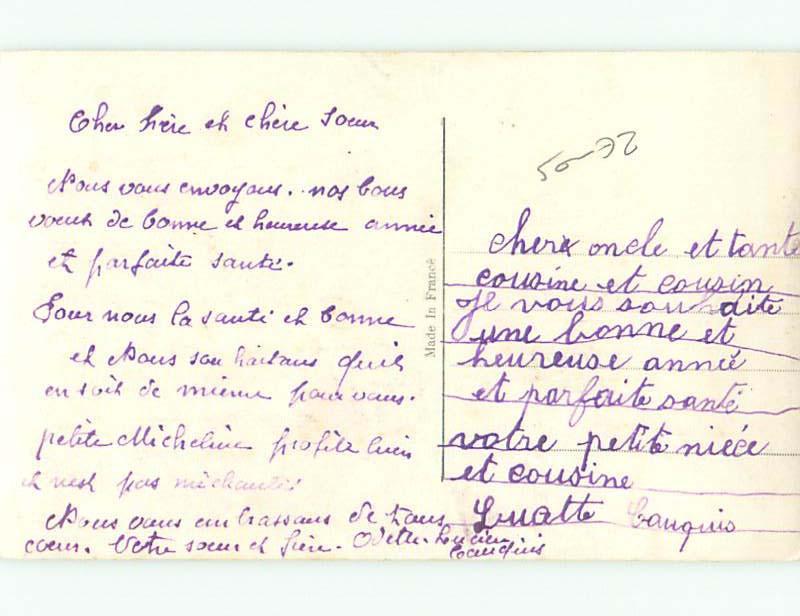 Cher frère et chère soeur
Nous vous envoyons. nos bons
voeux de bonne et heureuse année
et parfaite santé.
Pour nous la santé et bonne
et Nous souhaitons quil
en soit de même pour vous.
petite Micheline profite bien
et nest pas méchante.
Nous vous embrassons de tous
coeur. Votre soeur et frère. Odette. Lucien
Cauquis
Made In France
50-72
cherx oncle et tante
cousine et cousin
Je vous souhaite
une bonne et
heureuse année
et parfaite santé
votre petite nièce
et cousine